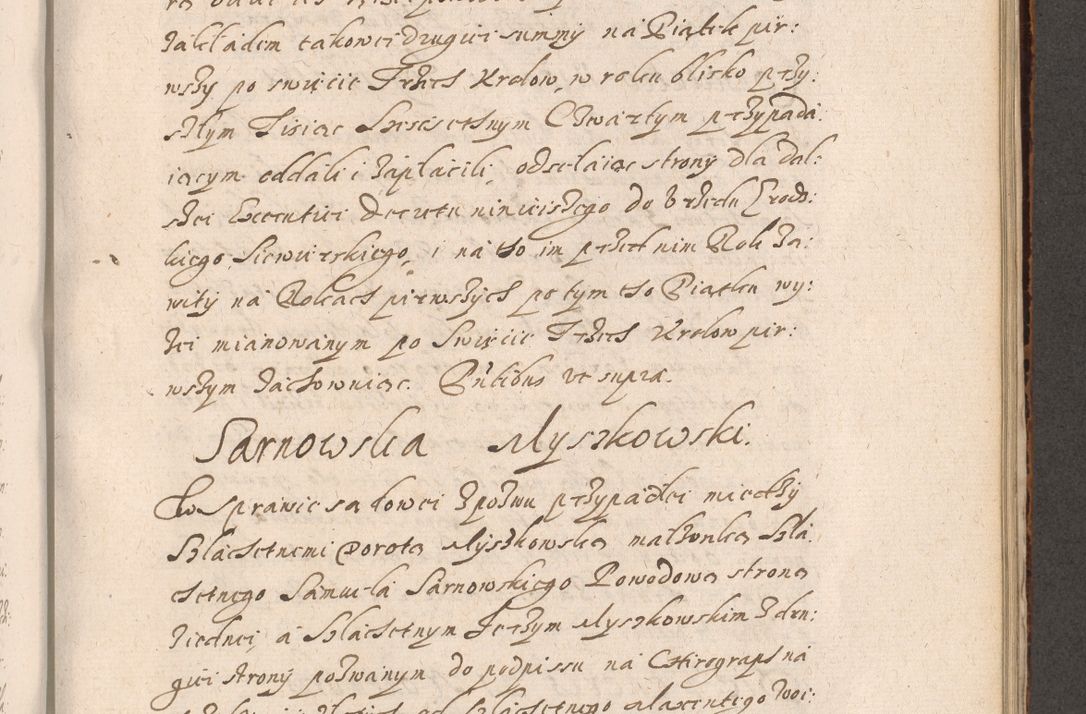 zakładem takowei drugiei summy na Piątek pir:
wszy po swięcie Trzech Krolow, w roku blisko przy:
szłym Tisiąc Szescsetnym Czwartym przypada:
iącym oddali i zapłacili, odsełaiąc strony dla dal:
szei Executiei Decretu ninieiszego do Vrzędu Grodz:
kiego Siewierskiego, i na to im przed nim Rok za:
wity na Rokach pierwszych po tym to Piątku wy:
żei mianowanym po Swięcie Trzech Krolow pir:
wszym zachowuiąc. Pntibus ut supra.
Sarnowska Myszkowski.
W Sprawie sądowei z pozwu przypadłei miedzy
Szlachetnemi Dorotą Myszkowską małżonką Szla:
chetnego Samuela Sarnowskiego Powodową stroną
z iednei, a Szlachetnym Jerzym Myszkowskim z dru:
giei strony pozwanym do podpissu na Chirograph na
Szlachetnego Maxentego Woi: